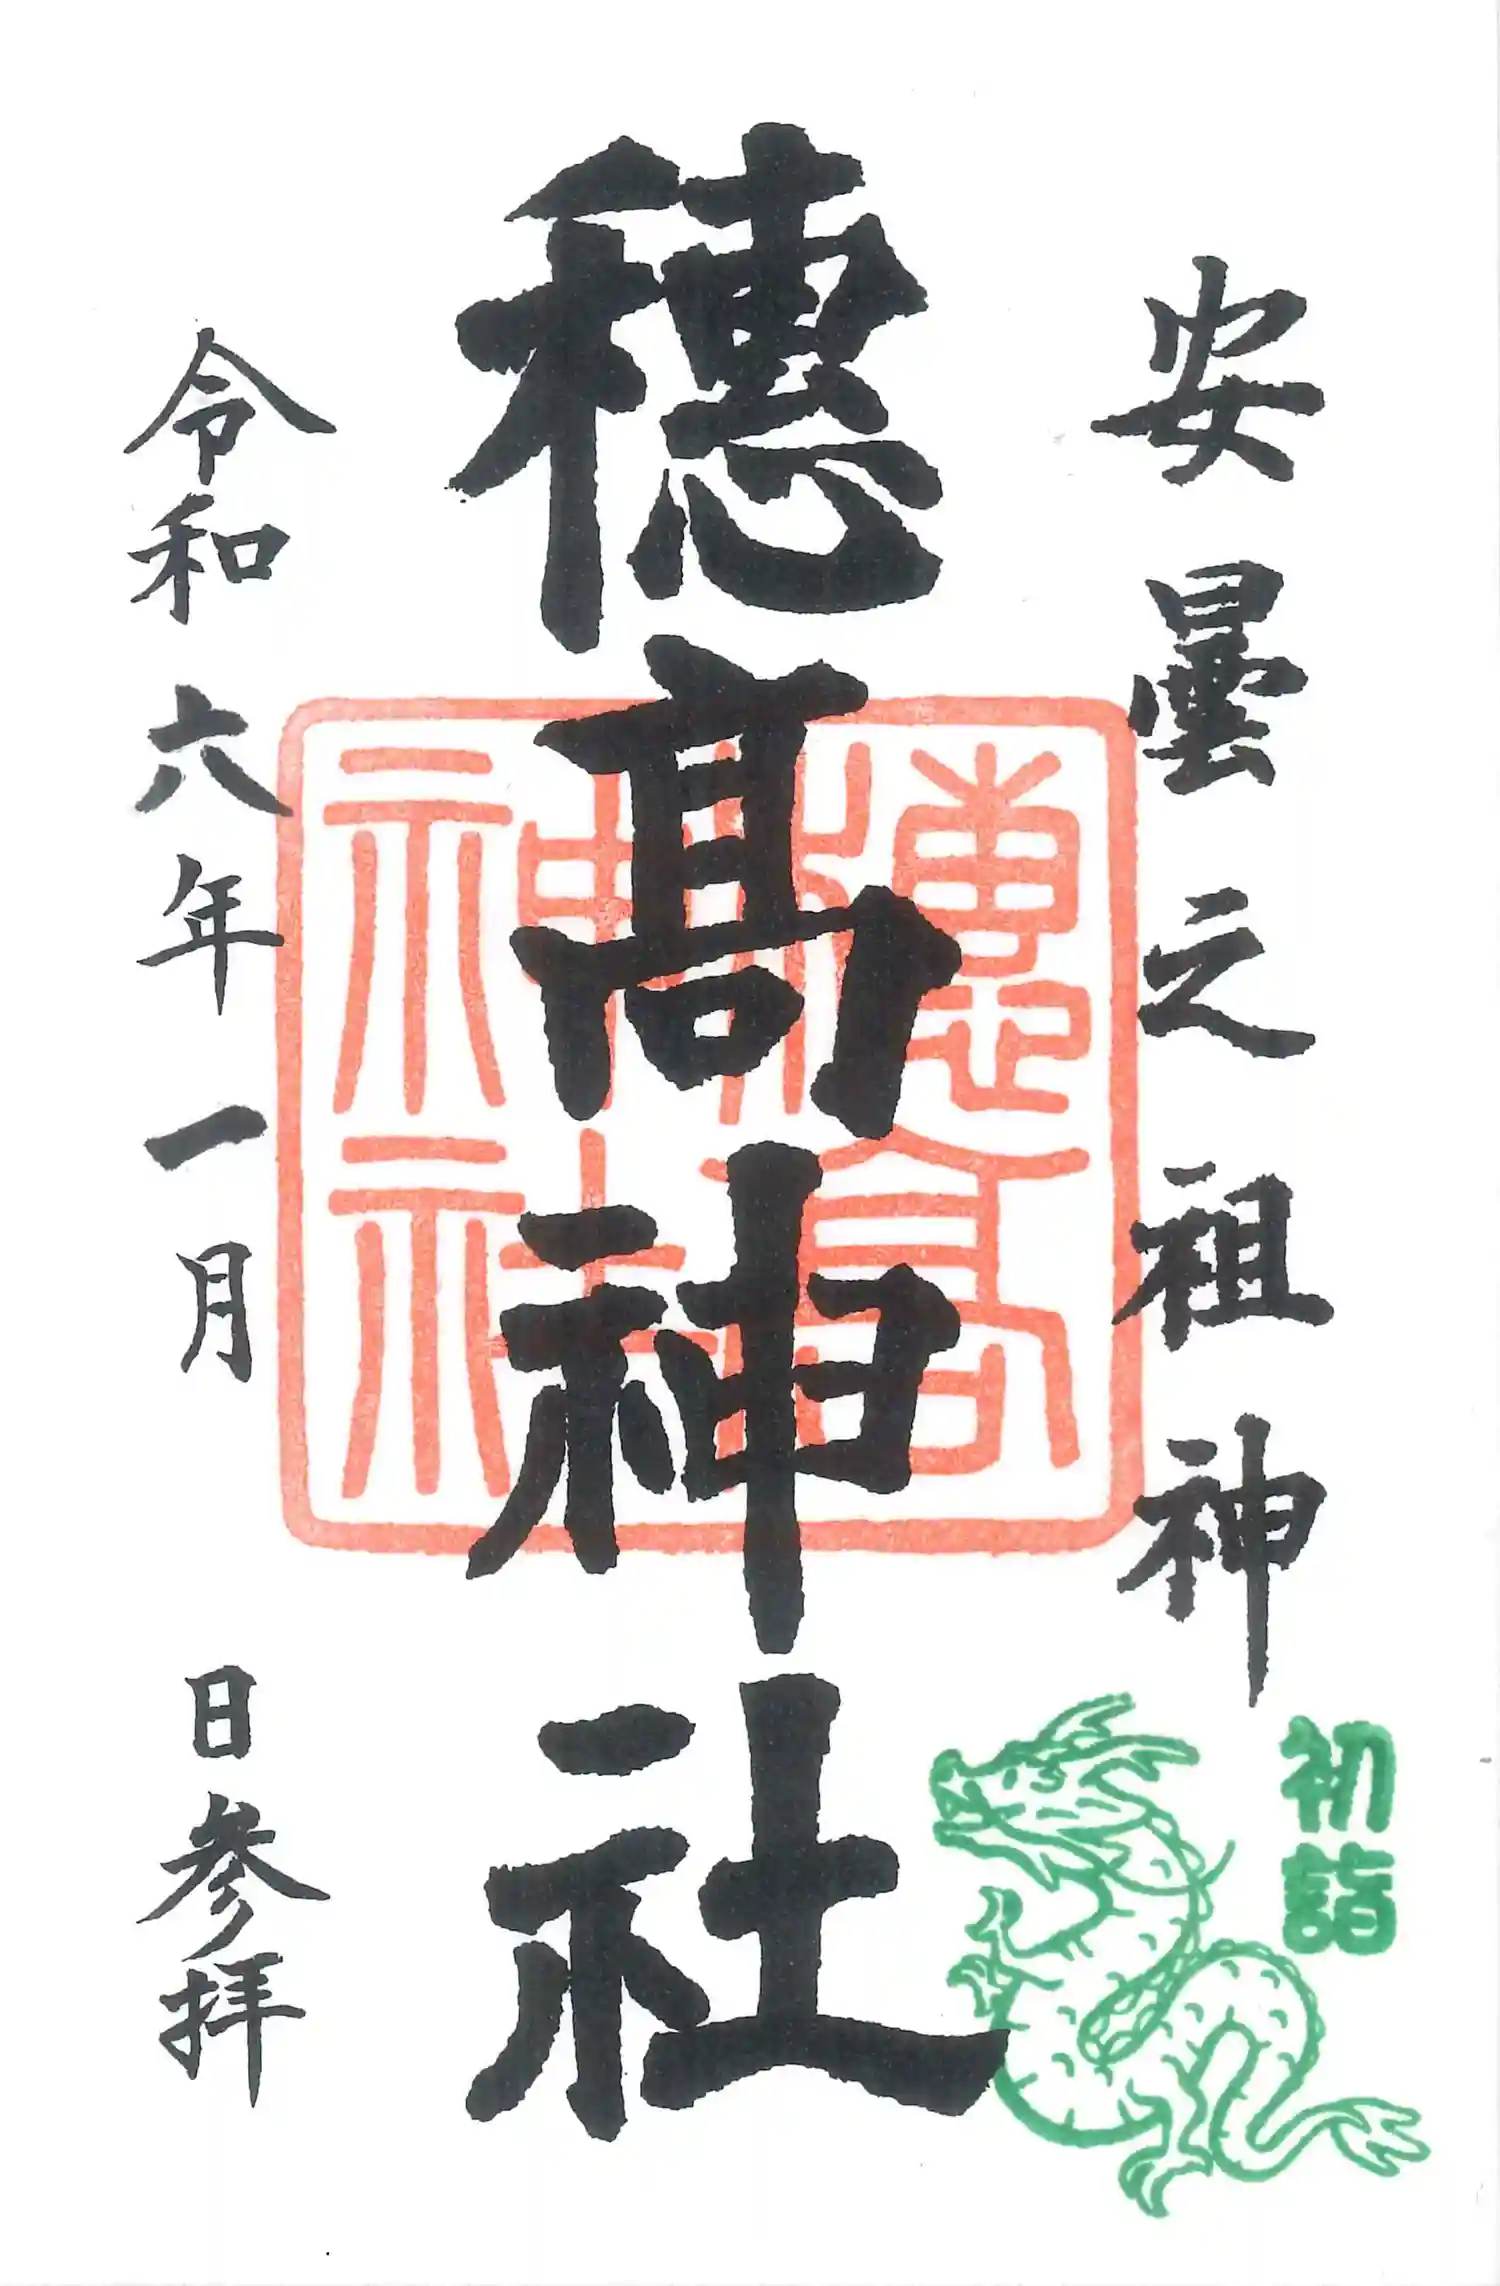 安曇之祖神
初詣
穂髙神社
穂高神社
令和六年一月 日参拝